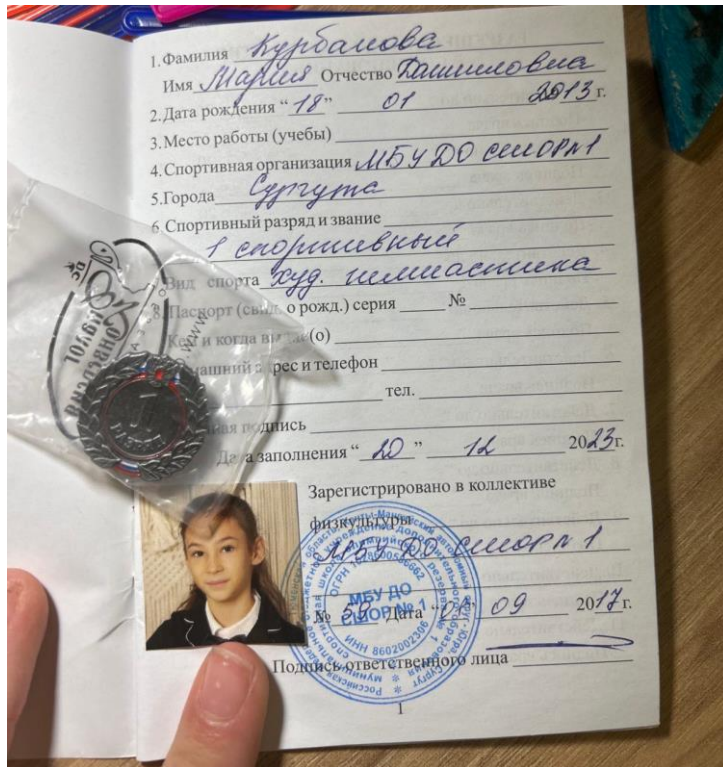 1.Фамилия Курбанова
Имя Мария Отчество Данииловна
2.Дата рождения “18” 01 2013 г.
3.Место работы (учебы)
4.Спортивная организация МБУ ДО СШОР №1
5.Города Сургута
6.Спортивный разряд и звание
1 спортивный
Вид спорта худ. гимнастика
8.Паспорт (свид. о рожд.) серия №
Кем и когда (о)
адрес и телефон
тел.
подпись
Дата заполнения “20” 12 2023г.
Зарегистрировано в коллективе
физкультуры
МБУ ДО СШОР №1
№ 58 Дата “01” 09 2017 г.
Подпись ответственного лица
1
МБУ ДО
СШОР № 1
ИНН 8602002306
РАЗРЯД